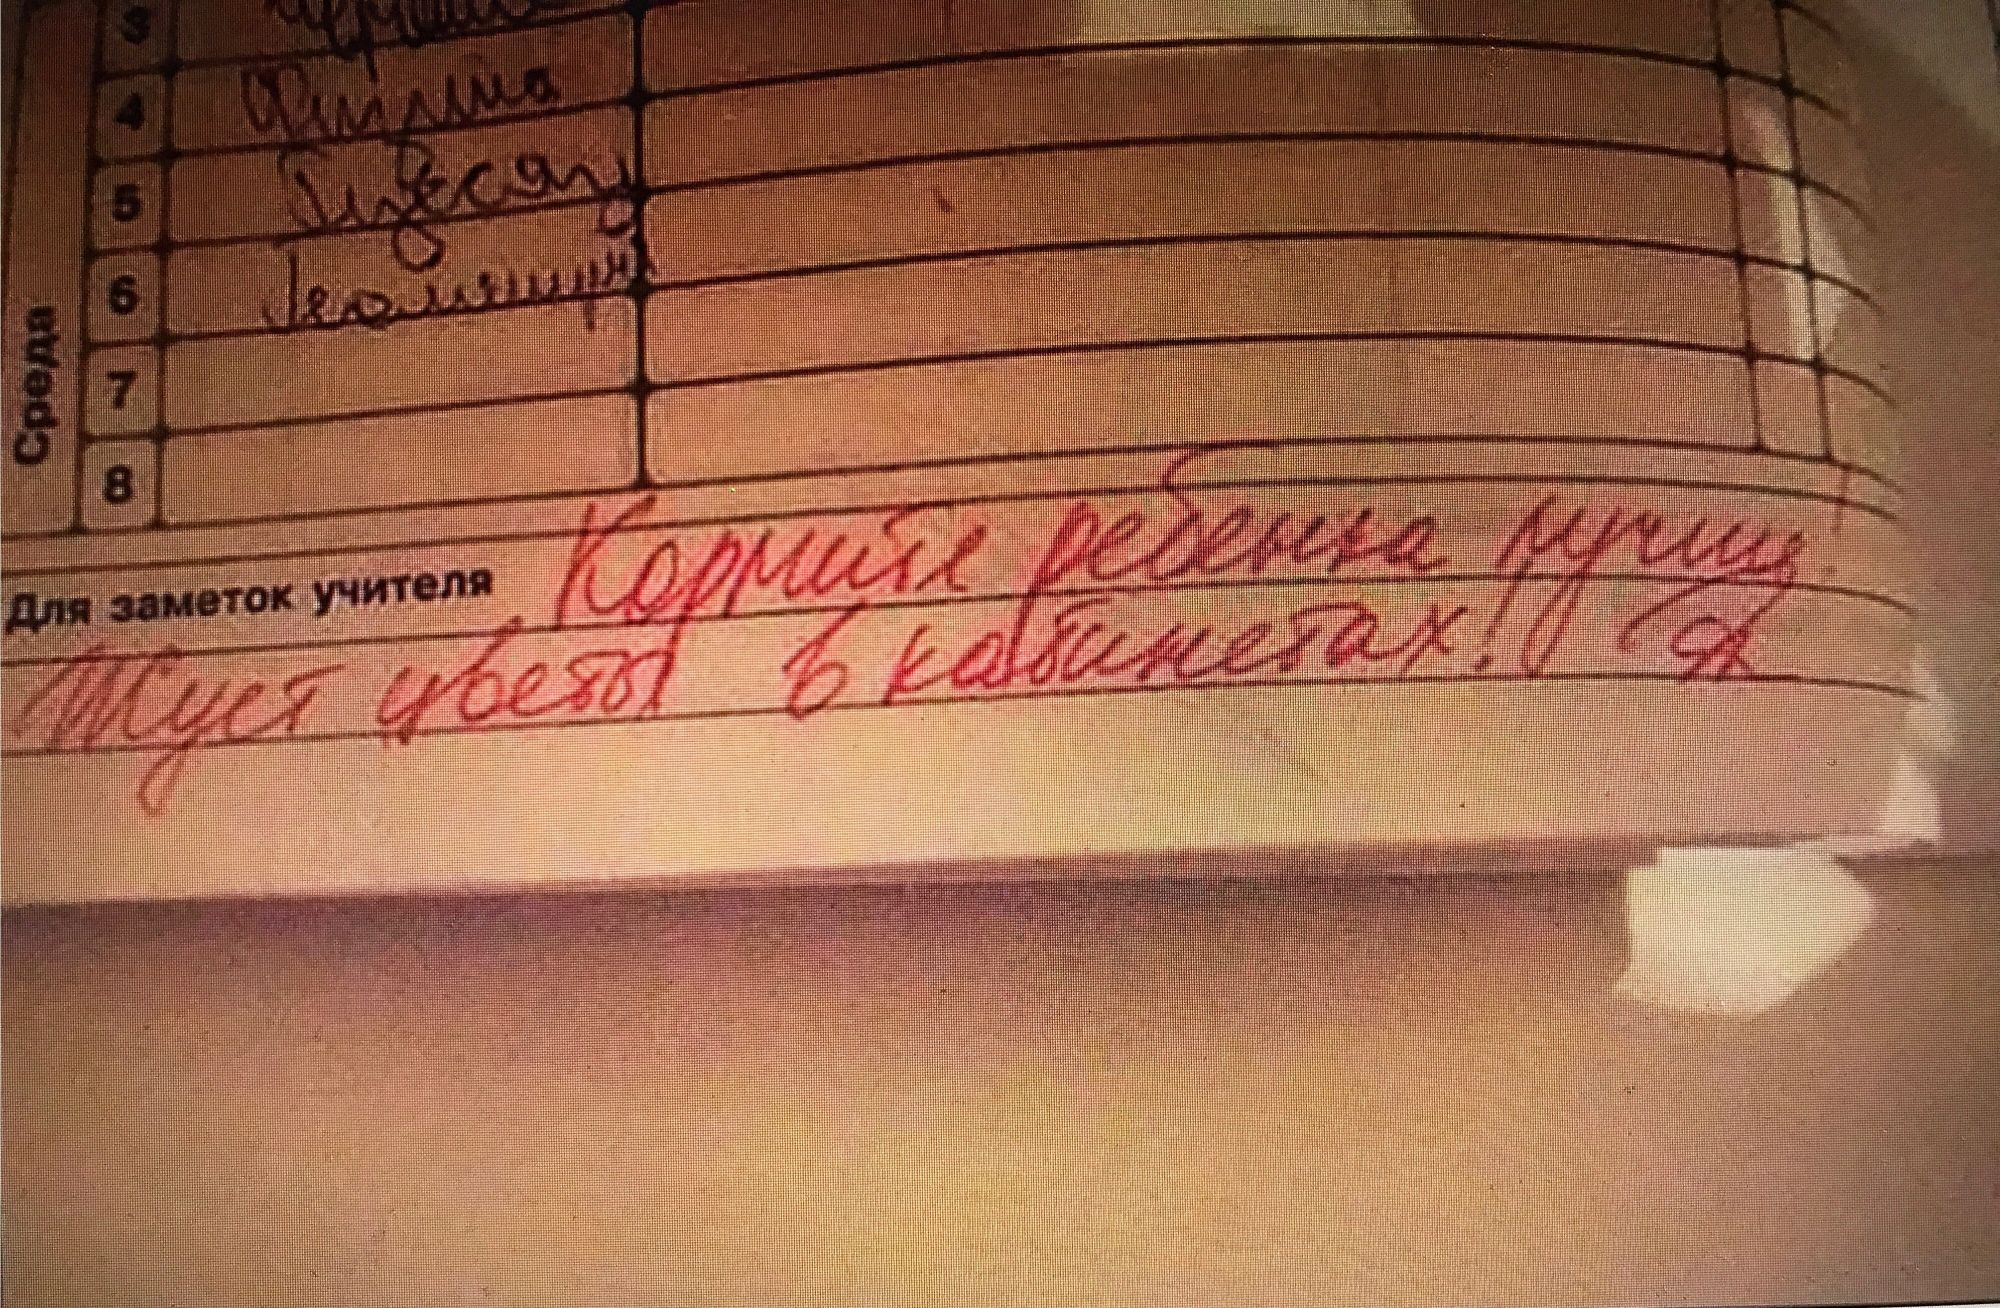 Среда
3
4 Физика
5
6 Геометрия
7
8
Для заметок учителя Кормите ребенка лучше.
Жует цветы в кабинетах!